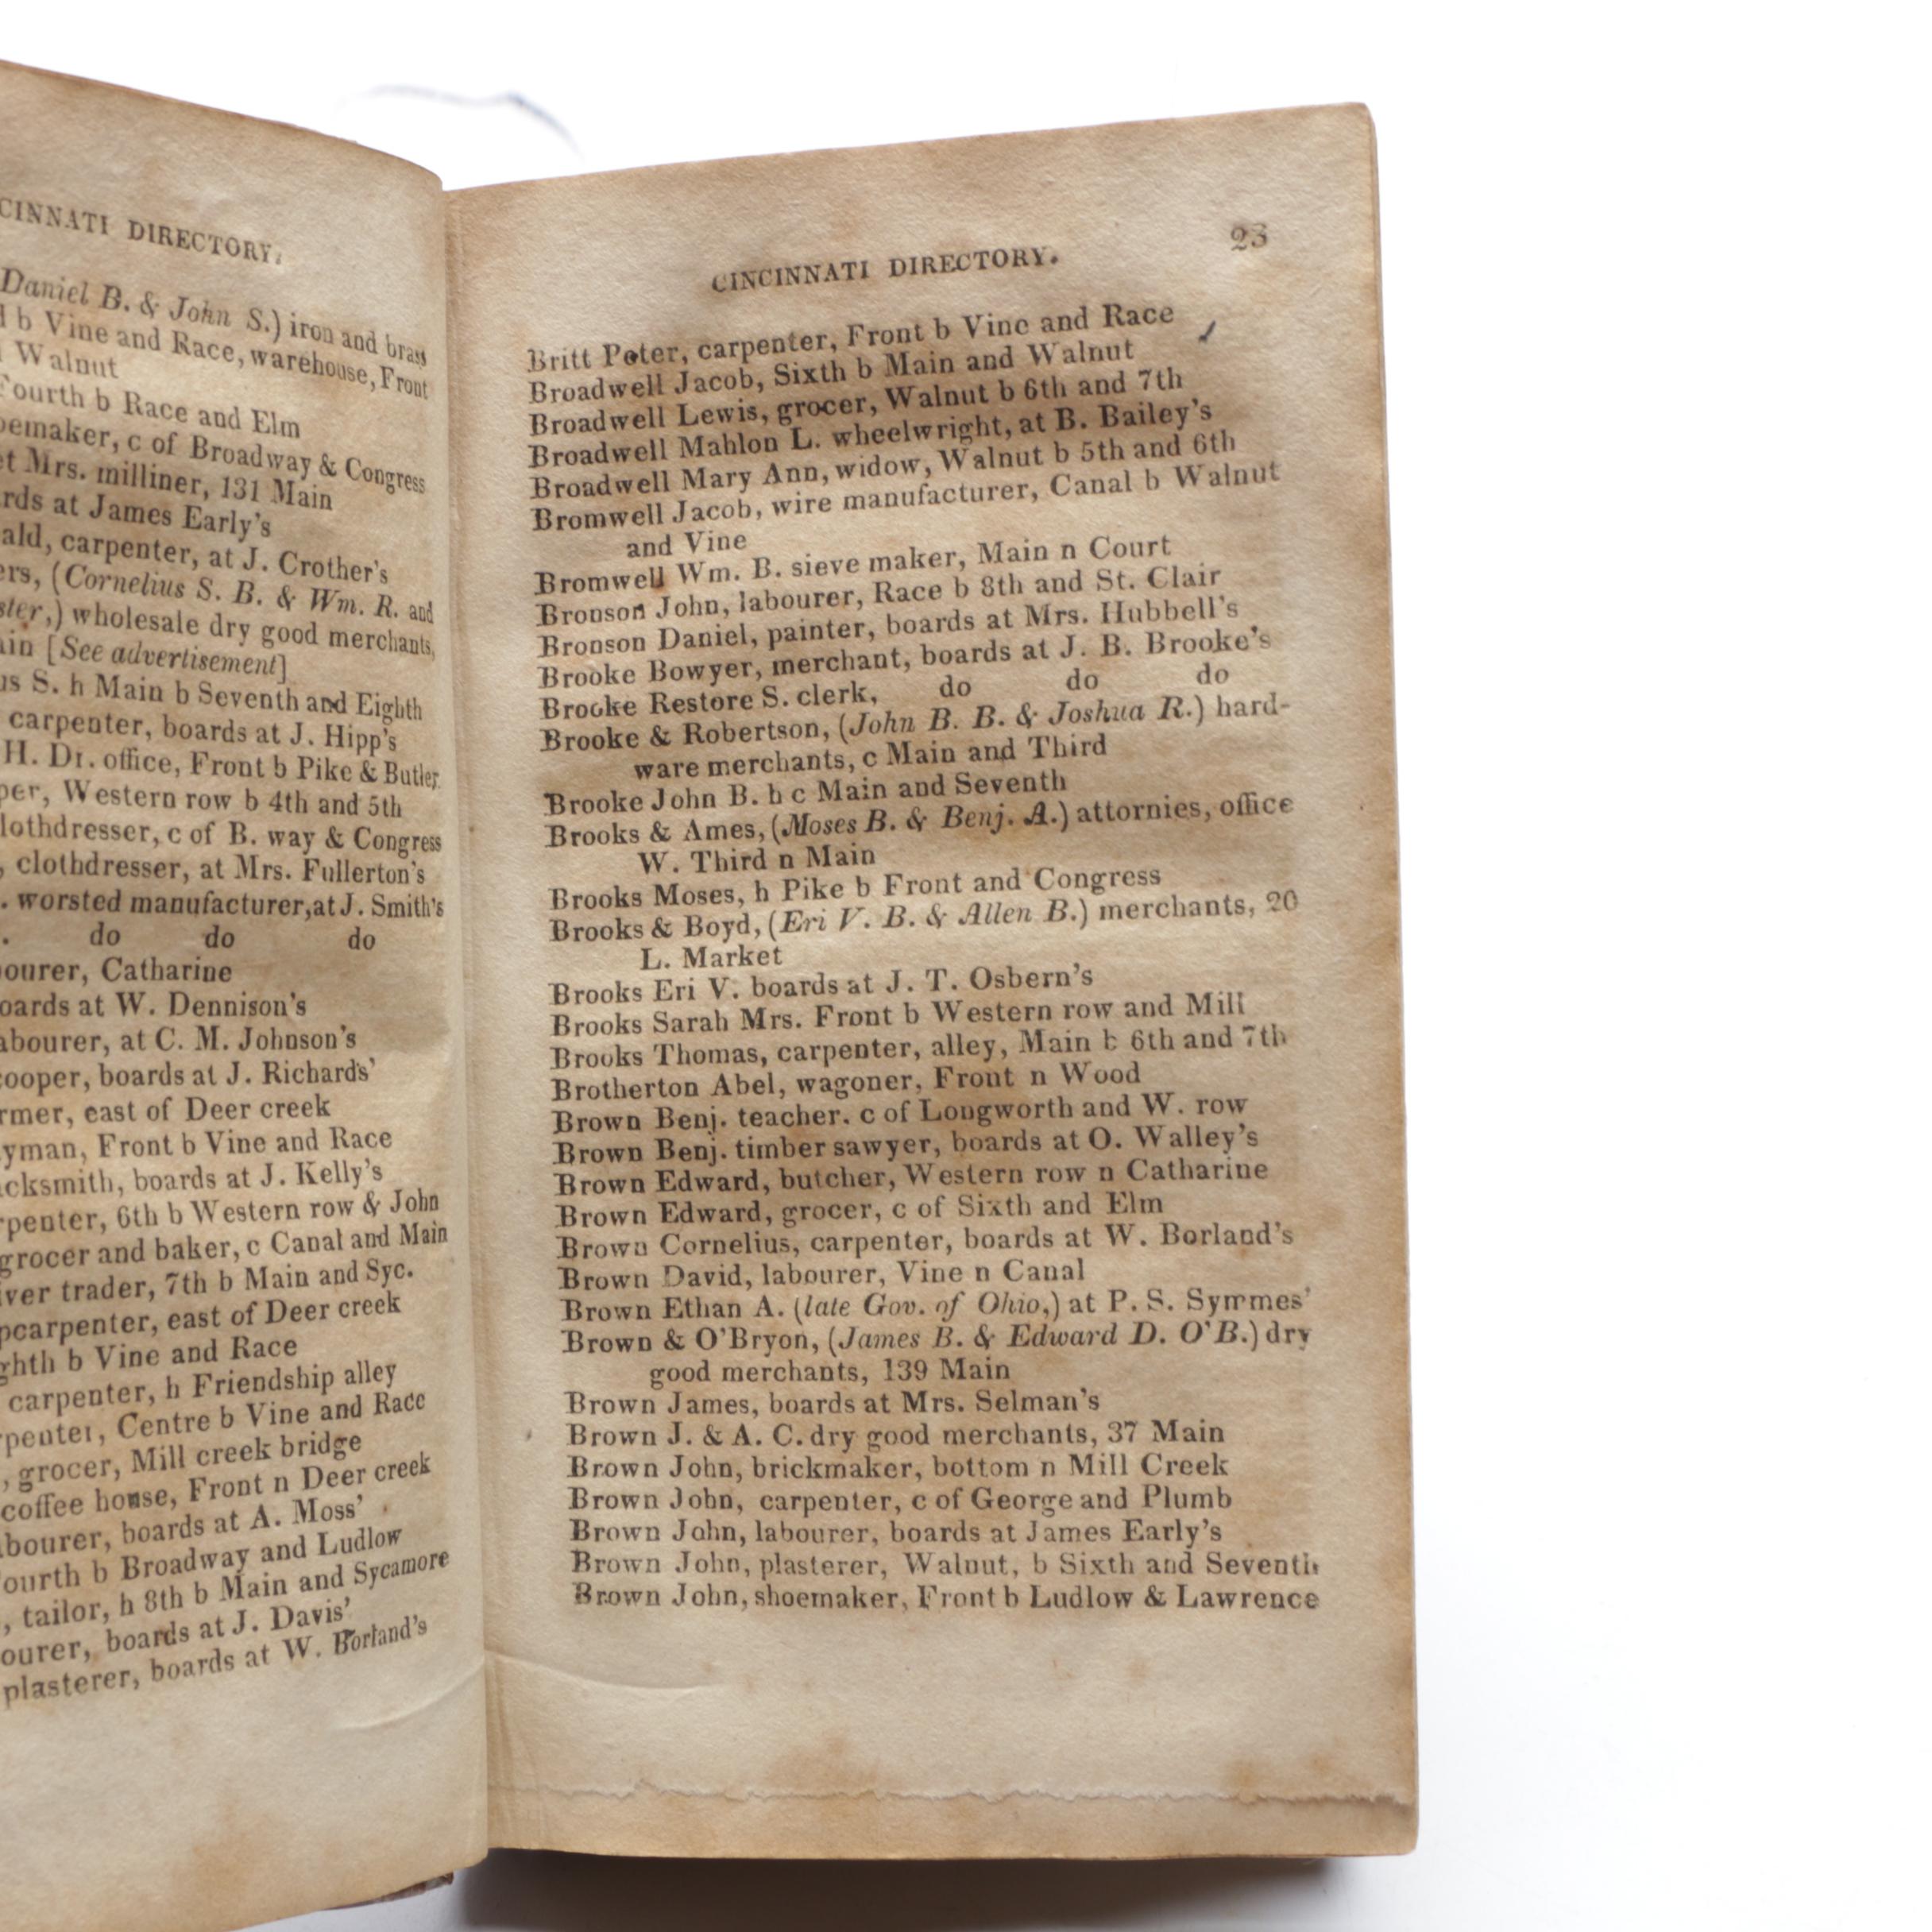 CINNATI DIRECTORY.
Daniel B. & John S.) iron and brass
b Vine and Race, warehouse, Front
Walnut
Fourth b Race and Elm
oemaker, c of Broadway & Congress
et Mrs. milliner, 131 Main
rds at James Early's
ald, carpenter, at J. Crother's
ers, (Cornelius S. B. & Wm. R. and
ster,) wholesale dry good merchants,
ain [See advertisement]
us S. h Main b Seventh and Eighth
carpenter, boards at J. Hipp's
H. Dr. office, Front b Pike & Butler
per, Western row b 4th and 5th
lothdresser, c of B. way & Congress
, clothdresser, at Mrs. Fullerton's
. worsted manufacturer, at J. Smith's
. do do do
bourer, Catharine
oards at W. Dennison's
abourer, at C. M. Johnson's
cooper, boards at J. Richards'
rmer, east of Deer creek
yman, Front b Vine and Race
acksmith, boards at J. Kelly's
rpenter, 6th b Western row & John
grocer and baker, c Canal and Main
iver trader, 7th b Main and Syc.
pcarpenter, east of Deer creek
ghth b Vine and Race
carpenter, h Friendship alley
rpenter, Centre b Vine and Race
, grocer, Mill creek bridge
coffee house, Front n Deer creek
abourer, boards at A. Moss'
Fourth b Broadway and Ludlow
, tailor, h 8th b Main and Sycamore
ourer, boards at J. Davis'
plasterer, boards at W. Borland's
CINCINNATI DIRECTORY. 23
Britt Peter, carpenter, Front b Vine and Race
Broadwell Jacob, Sixth b Main and Walnut
Broadwell Lewis, grocer, Walnut b 6th and 7th
Broadwell Mahlon L. wheelwright, at B. Bailey's
Broadwell Mary Ann, widow, Walnut b 5th and 6th
Bromwell Jacob, wire manufacturer, Canal b Walnut
and Vine
Bromwell Wm. B. sieve maker, Main n Court
Bronson John, labourer, Race b 8th and St. Clair
Bronson Daniel, painter, boards at Mrs. Hubbell's
Brooke Bowyer, merchant, boards at J. B. Brooke's
Brooke Restore S. clerk, do do do
Brooke & Robertson, (John B. B. & Joshua R.) hard-
ware merchants, c Main and Third
Brooke John B. h c Main and Seventh
Brooks & Ames, (Moses B. & Benj. A.) attornies, office
W. Third n Main
Brooks Moses, h Pike b Front and Congress
Brooks & Boyd, (Eri V. B. & Allen B.) merchants, 20
L. Market
Brooks Eri V. boards at J. T. Osbern's
Brooks Sarah Mrs. Front b Western row and Mill
Brooks Thomas, carpenter, alley, Main b 6th and 7th
Brotherton Abel, wagoner, Front n Wood
Brown Benj. teacher. c of Longworth and W. row
Brown Benj. timber sawyer, boards at O. Walley's
Brown Edward, butcher, Western row n Catharine
Brown Edward, grocer, c of Sixth and Elm
Brown Cornelius, carpenter, boards at W. Borland's
Brown David, labourer, Vine n Canal
Brown Ethan A. (late Gov. of Ohio,) at P. S. Symmes'
Brown & O'Bryon, (James B. & Edward D. O'B.) dry
good merchants, 139 Main
Brown James, boards at Mrs. Selman's
Brown J. & A. C. dry good merchants, 37 Main
Brown John, brickmaker, bottom n Mill Creek
Brown John, carpenter, c of George and Plumb
Brown John, labourer, boards at James Early's
Brown John, plasterer, Walnut, b Sixth and Seventh
Brown John, shoemaker, Front b Ludlow & Lawrence